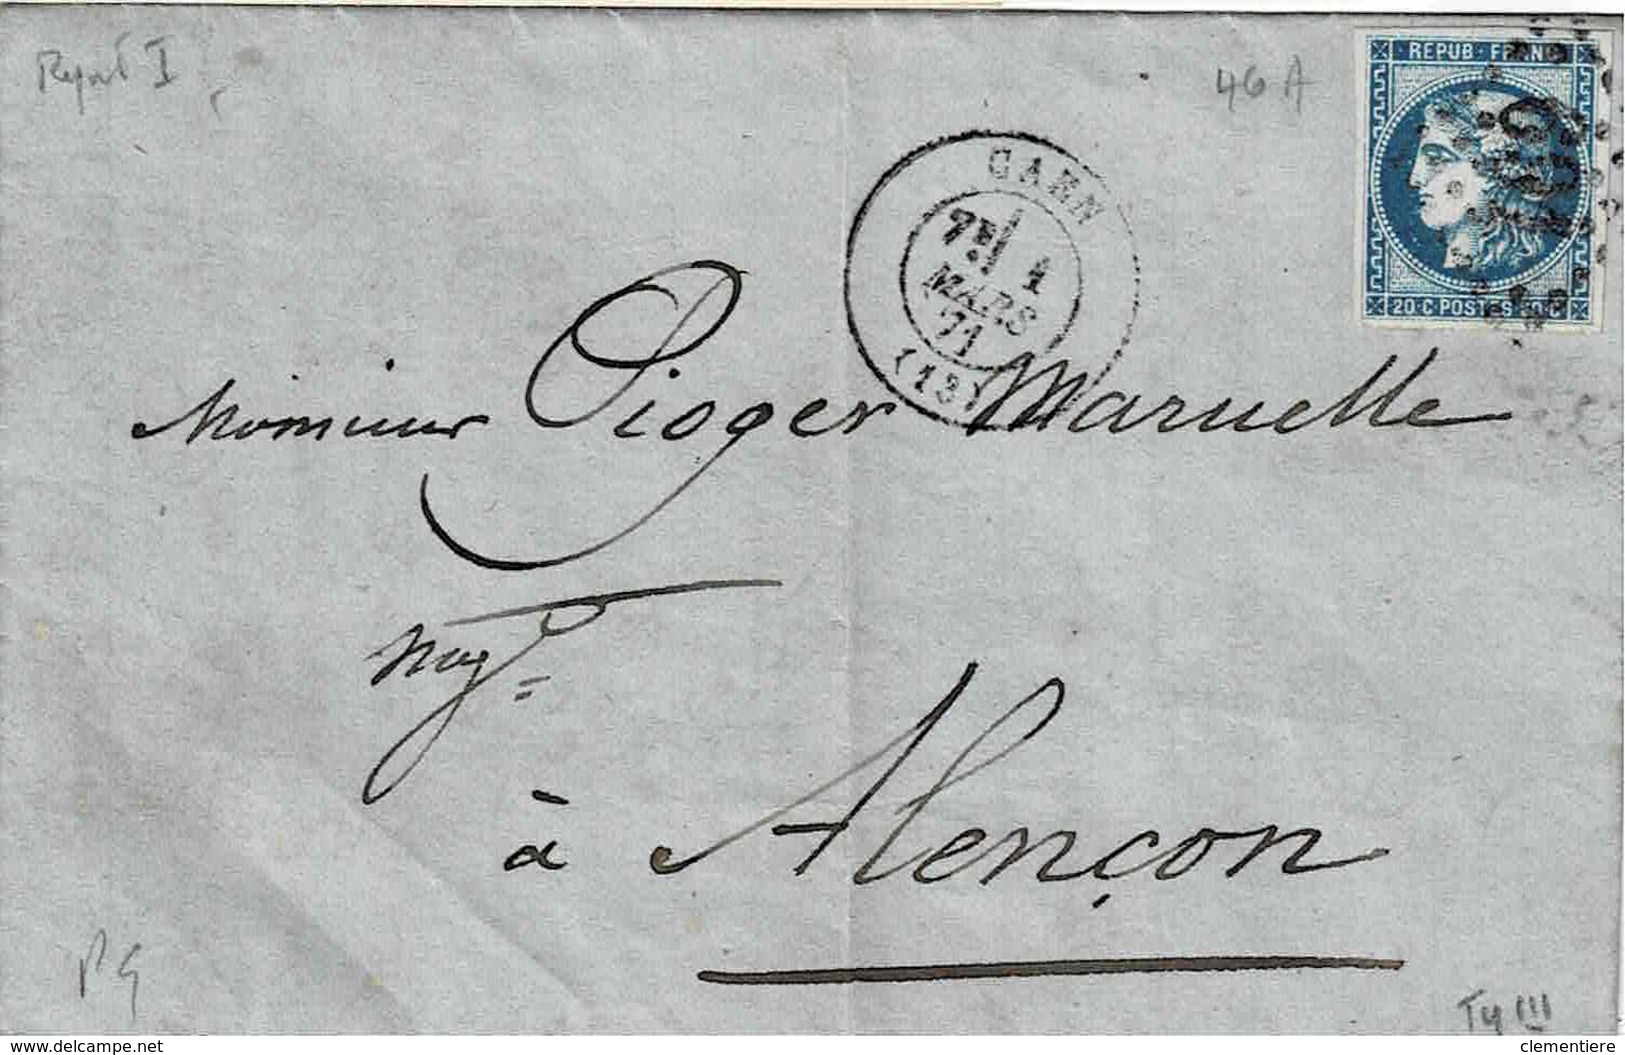 Report I
46 A
REPUB · FRANC
20 · C POSTES 20 · C
CAEN
7E 1
MARS
71
(13)
Monsieur Pioger Maruelle
Negt
à Alençon
Ty III
www.delcampe.net
clementiere